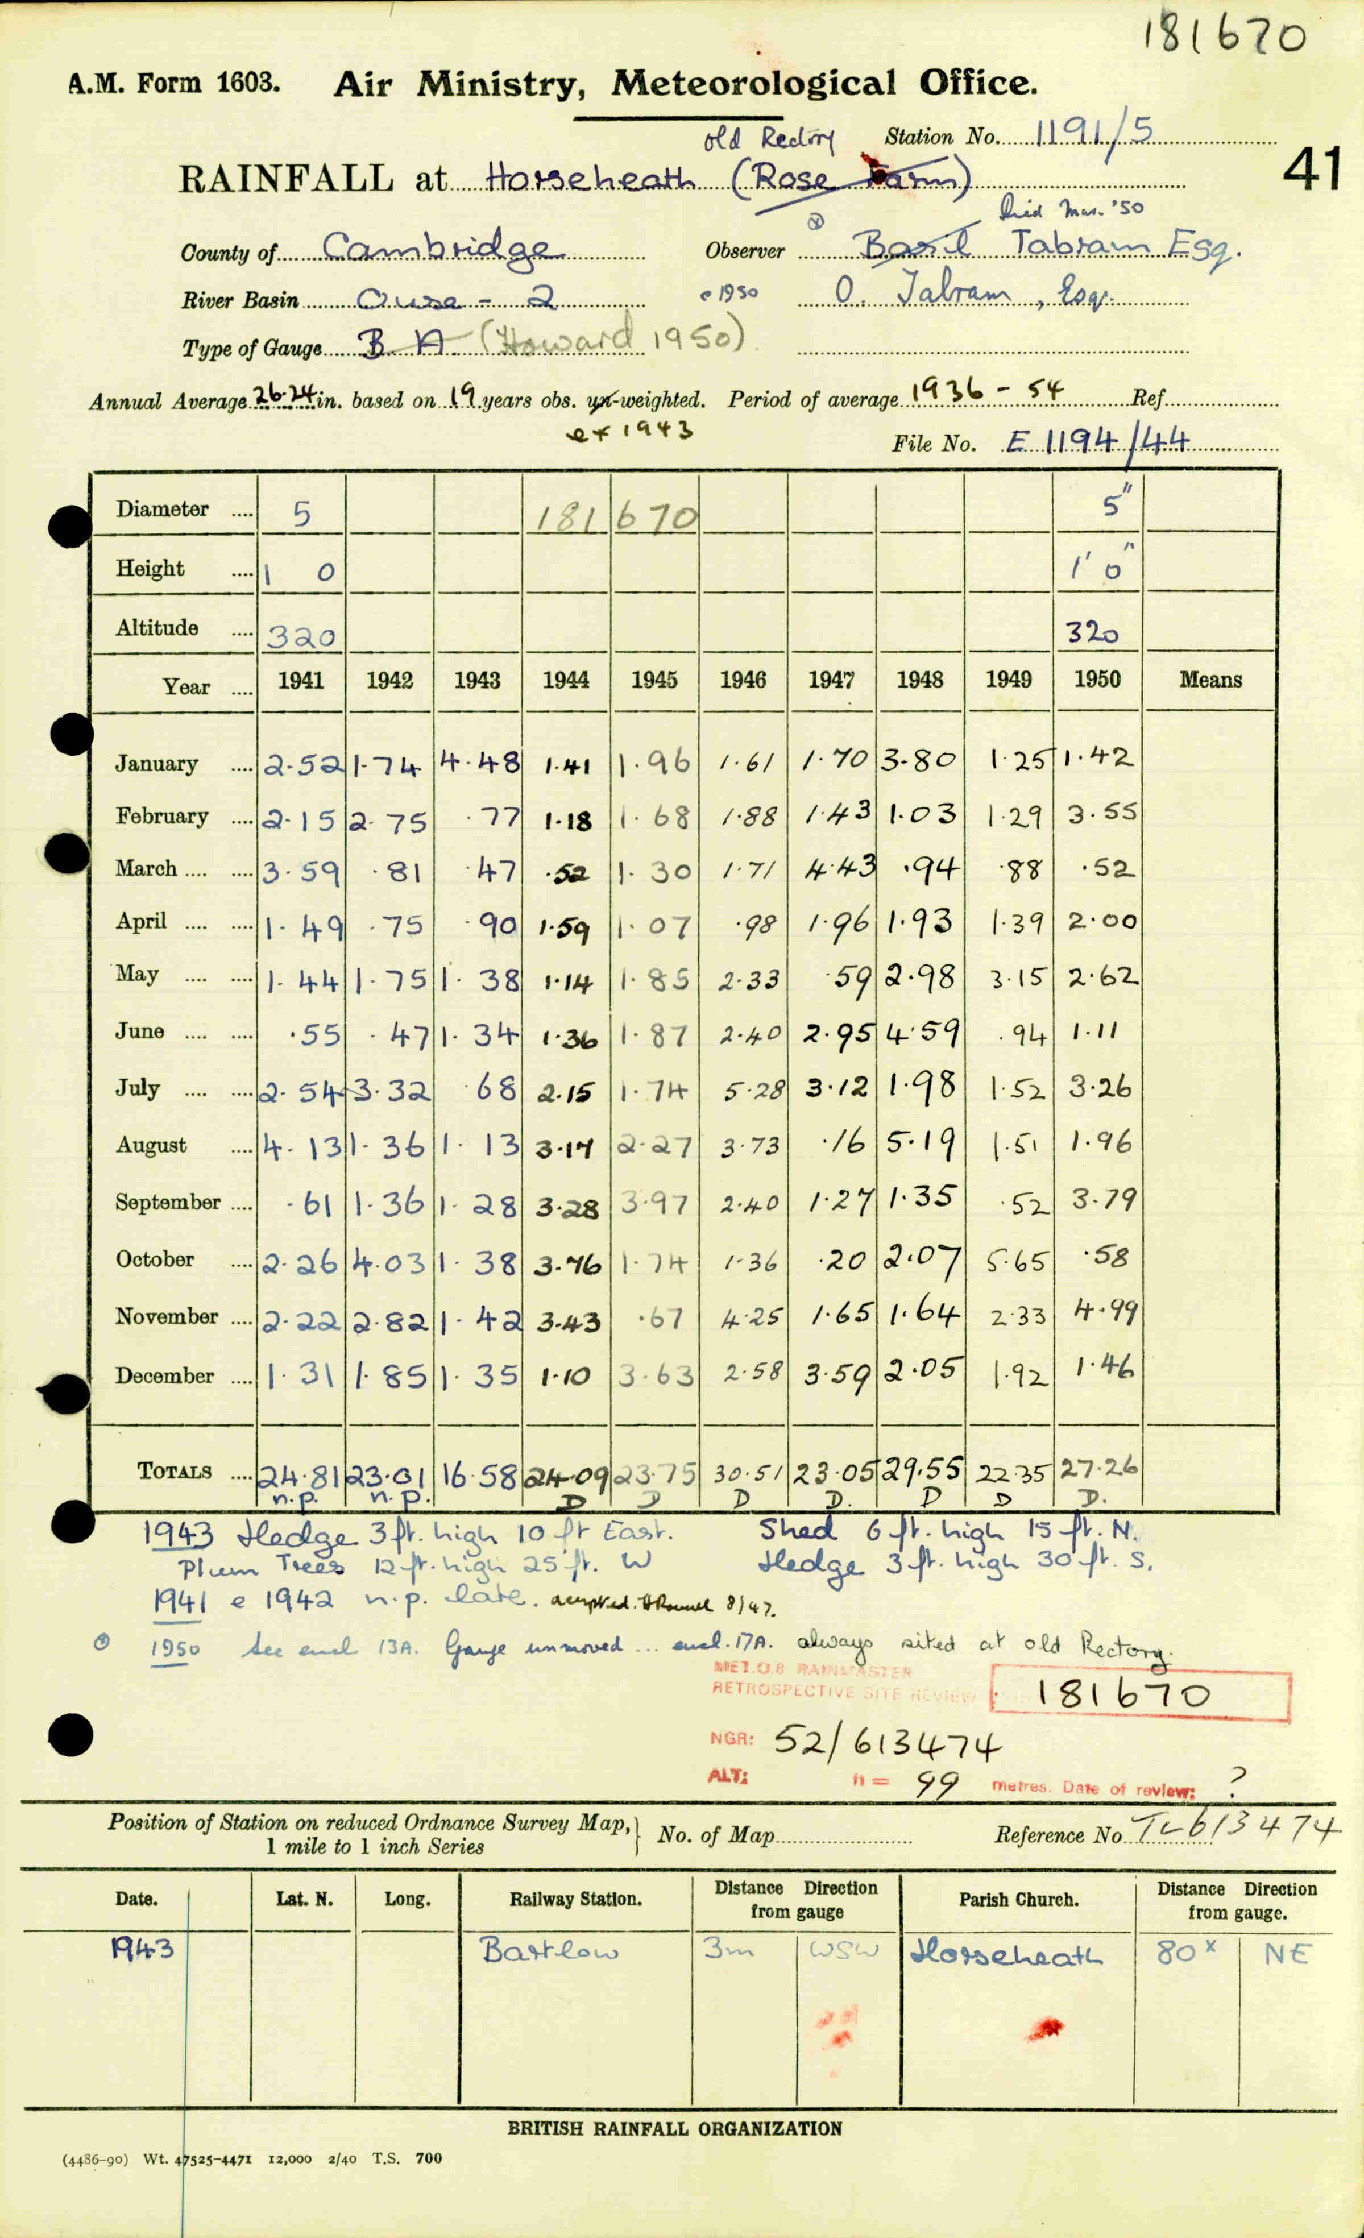 181670
A.M. Form 1603. Air Ministry, Meteorological Office.
old Rectory Station No. 1191/5
41
RAINFALL at Horseheath (Rose Farm)
Died Mar. '50
County of Cambridge Observer Basil Tabram Esq.
River Basin Ouse - 2 e 1950 O. Tabram, Esq.
Type of Gauge B A (Howard 1950)
Annual Average 26.24 in. based on 19 years obs. un-weighted. Period of average 1936 - 54 Ref.
ex 1943
File No. E 1194/44
Diameter .... 5 181670 5"
Height .... 1 0 1' 0"
Altitude .... 320 320
Year .... 1941 1942 1943 1944 1945 1946 1947 1948 1949 1950 Means
January .... 2.52 1.74 4.48 1.41 1.96 1.61 1.70 3.80 1.25 1.42
February .... 2.15 2.75 .77 1.18 1.68 1.88 1.43 1.03 1.29 3.55
March .... .... 3.59 .81 .47 .52 1.30 1.71 4.43 .94 .88 .52
April .... .... 1.49 .75 .90 1.59 1.07 .98 1.96 1.93 1.39 2.00
May .... .... 1.44 1.75 1.38 1.14 1.85 2.33 .59 2.98 3.15 2.62
June .... .... .55 .47 1.34 1.36 1.87 2.40 2.95 4.59 .94 1.11
July .... .... 2.54 3.32 .68 2.15 1.74 5.28 3.12 1.98 1.52 3.26
August .... 4.13 1.36 1.13 3.17 2.27 3.73 .16 5.19 1.51 1.96
September .... .61 1.36 1.28 3.28 3.97 2.40 1.27 1.35 .52 3.79
October .... 2.26 4.03 1.38 3.76 1.74 1.36 .20 2.07 5.65 .58
November .... 2.22 2.82 1.42 3.43 .67 4.25 1.65 1.64 2.33 4.99
December .... 1.31 1.85 1.35 1.10 3.63 2.58 3.59 2.05 1.92 1.46
TOTALS .... 24.81 23.01 16.58 24.09 23.75 30.51 23.05 29.55 22.35 27.26
n.p. n.p. D D D D. D D D.
1943 Hedge 3 ft. high 10 ft East. Shed 6 ft. high 15 ft. N.
Plum Trees 12 ft. high 25 ft. W Hedge 3 ft. high 30 ft. S.
1941 e 1942 n.p. late. accepted. 8/47.
1950 See encl 13A. Gauge unmoved ... encl. 17A. always sited at old Rectory.
MET.O.8 RAINMASTER
RETROSPECTIVE SITE REVIEW 181670
NGR: 52/613474
ALT: ft = 99 metres. Date of review: ?
Position of Station on reduced Ordnance Survey Map, 1 mile to 1 inch Series No. of Map Reference No. TL 613474
Date. Lat. N. Long. Railway Station. Distance Direction from gauge Parish Church. Distance Direction from gauge.
1943 Bartlow 3m WSW Horseheath 80x NE
BRITISH RAINFALL ORGANIZATION
(4486-90) Wt. 47525-4471 12,000 2/40 T.S. 700